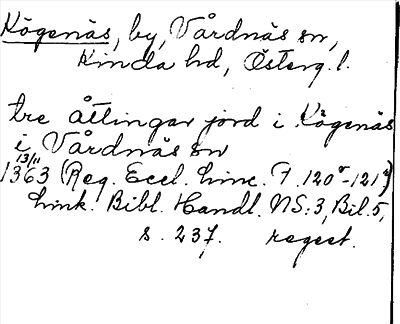 Kögenäs, by, Vårdnäs sn,
Kinda hd, Österg. l.
tre åttingar jord i Kögenäs
i Vårdnäs sn
13/11
1363 (Reg. Eccl. Linc. F. 120v-121r)
Link. Bibl. Handl. NS:3, Bil. 5,
s. 237. regest.